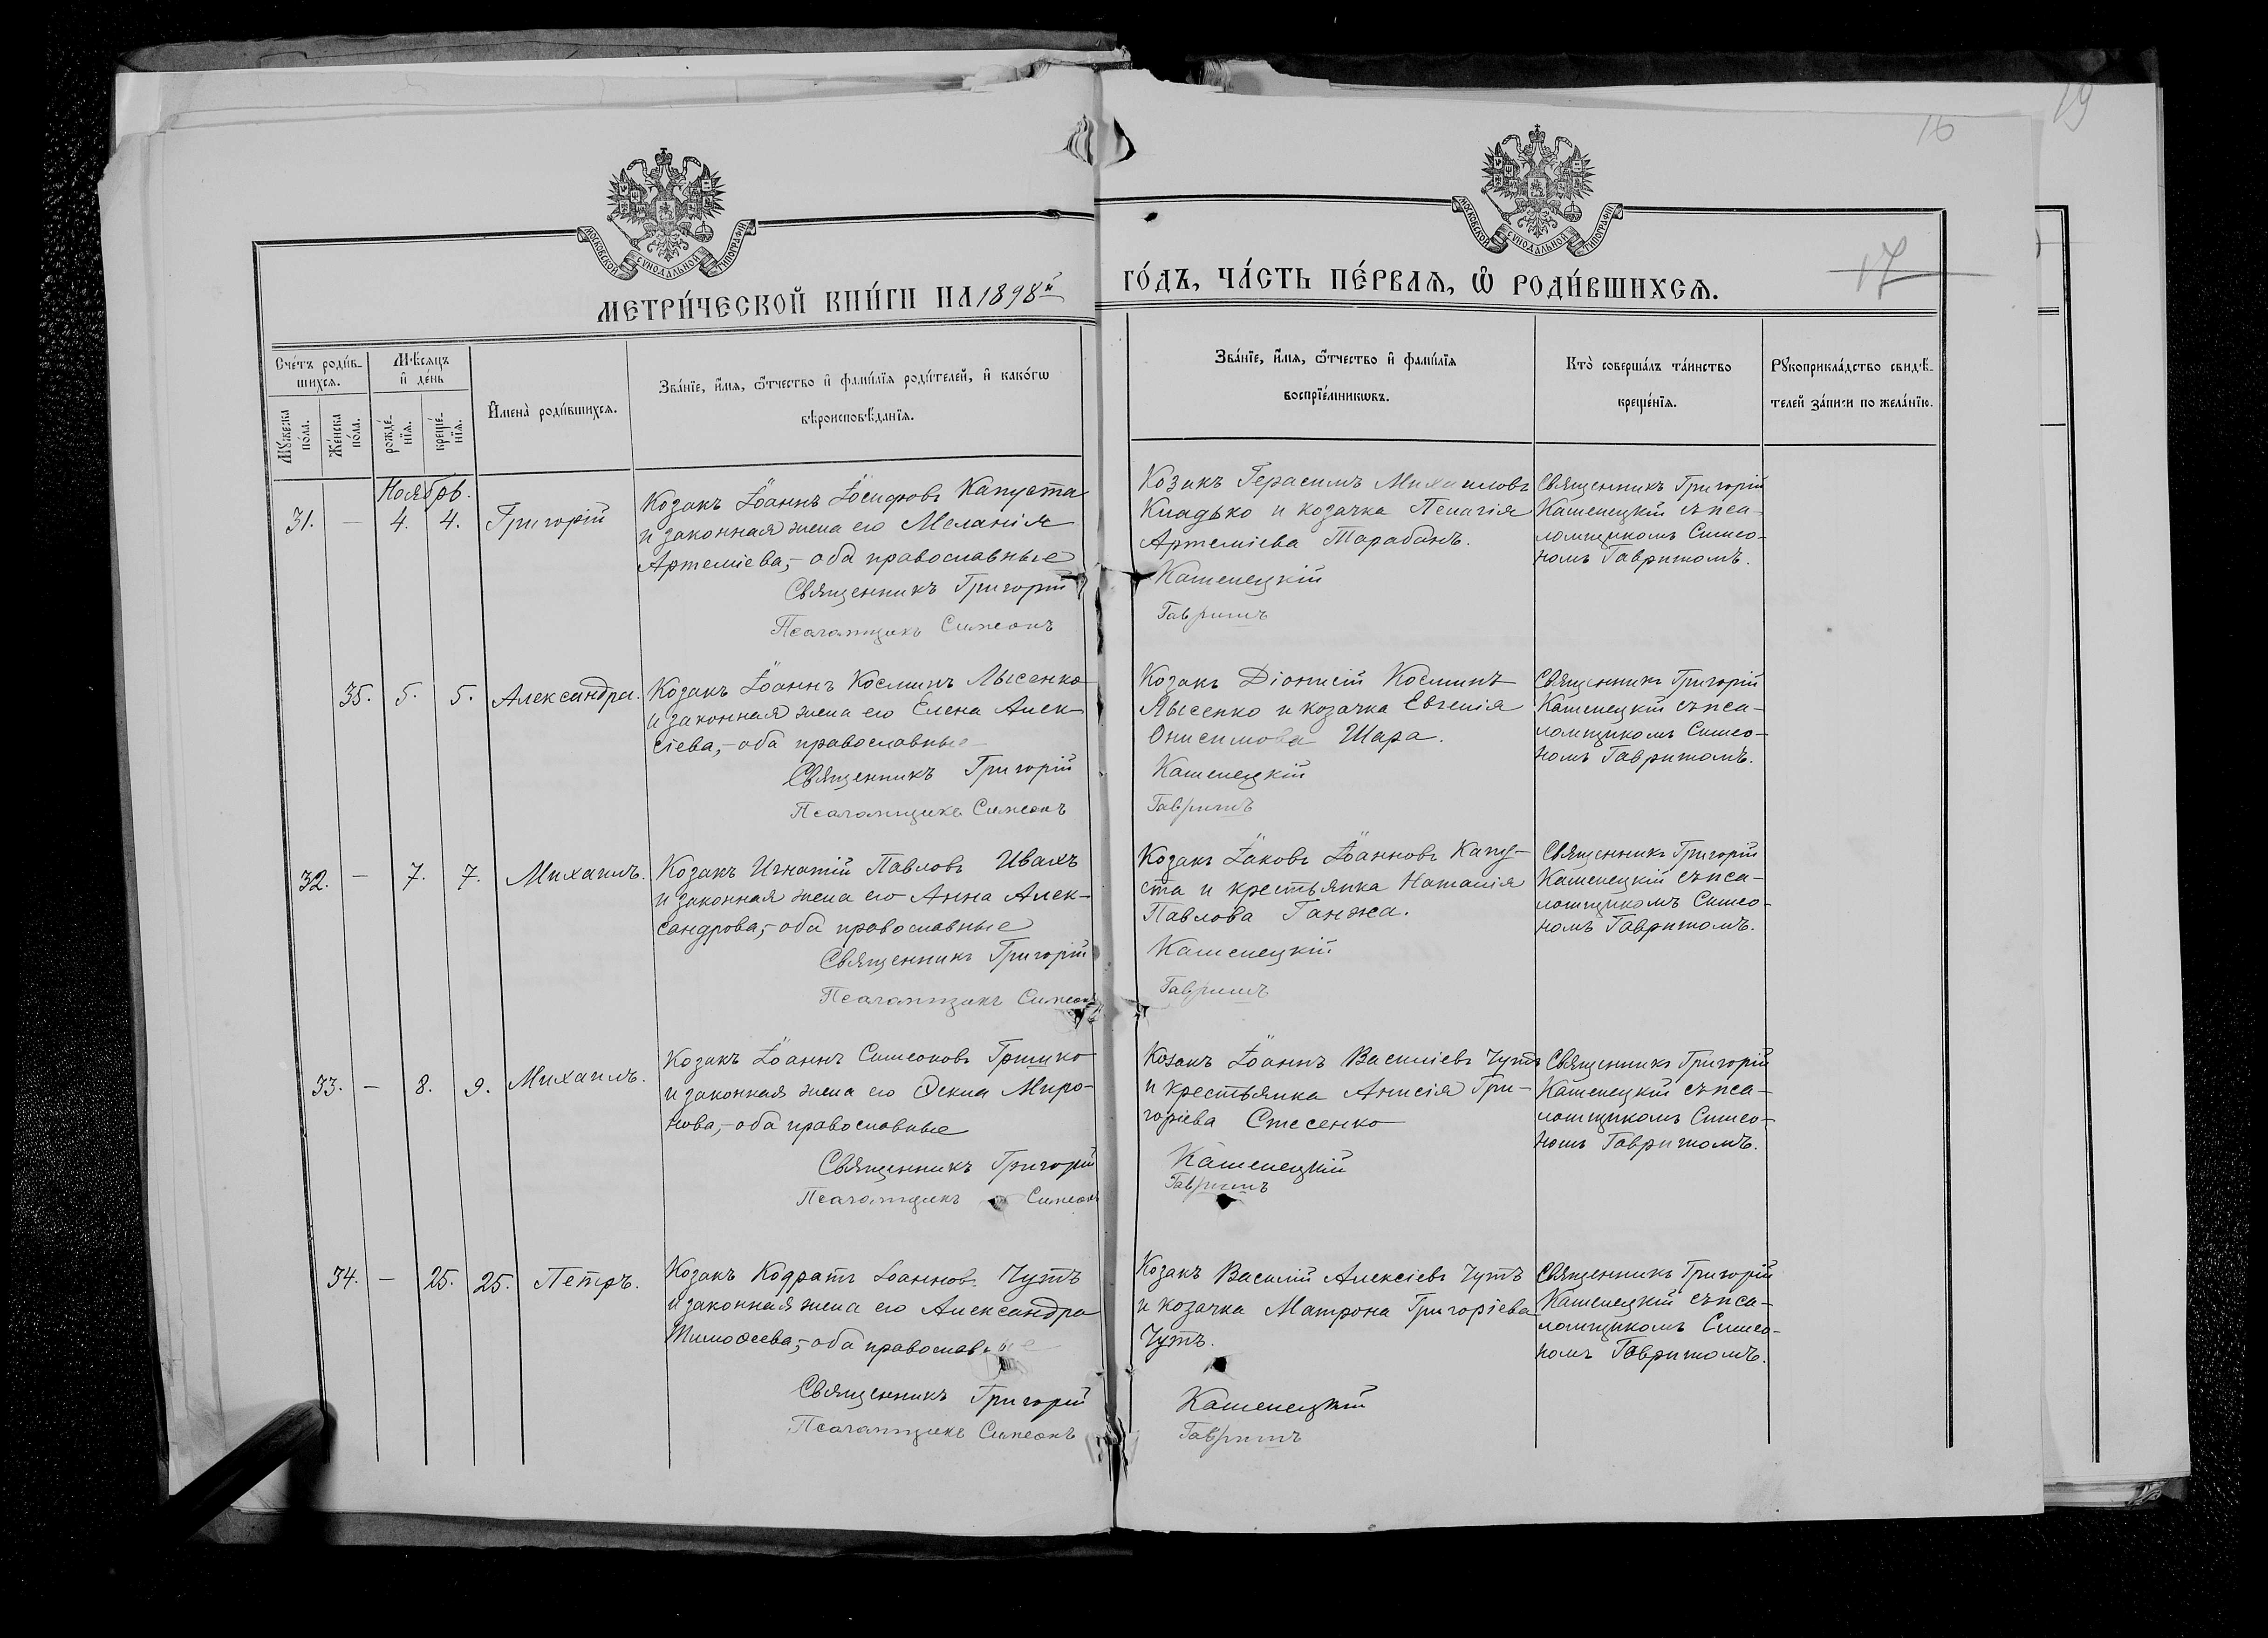 16
19
17
МОСКОВСКОЙ СѴНОДАЛЬНОЙ ТИПОГРАФІИ
МОСКОВСКОЙ СѴНОДАЛЬНОЙ ТИПОГРАФІИ
МЕТРИ́ЧЕСКОЙ КНИ́ГИ НА 1898й ГО́ДЪ, ЧА́СТЬ ПЕ́РВАѦ, Ѡ҆ РОДИ́ВШИХСѦ.
Сче́тъ роди́в-
шихсѧ.
Мѣ́сѧцъ
и҆ де́нь
Мꙋ́жеска
по́ла.
Же́нска
по́ла.
рожде́-
нїѧ.
креще́-
нїѧ.
И҆мена̀ роди́вшихсѧ.
Зва́нїе, и҆́мѧ, ѻ҆́тчество и҆ фами́лїѧ роди́телей, и҆ како́гѡ
вѣроисповѣ́данїѧ.
Зва́нїе, и҆́мѧ, ѻ҆́тчество и҆ фами́лїѧ
воспрїе́мникѡвъ.
Кто̀ соверша́лъ та́инство
креще́нїѧ.
Рꙋкоприкла́дство свидѣ́-
телей за́писи по жела́нїю.
Ноябрь.
31. — 4. 4. Григорій
Козакъ Іоаннъ Іосифовъ Капуста
и законная жена его Меланія
Артеміева,- оба православные
Священникъ Григорій
Псаломщикъ Симеонъ
Козакъ Герасимъ Михаиловъ
Кладько и козачка Пелагія
Артеміева Тарабанъ.
Каменецкій
Гавришъ
Священникъ Григорій
Каменецкій съ пса-
ломщикомъ Симео-
номъ Гавришомъ.
35. 5. 5. Александра.
Козакъ Іоаннъ Косминъ Лысенко
и законная жена его Елена Алек-
сіева,- оба православные
Священникъ Григорій
Псаломщикъ Симеонъ
Козакъ Діонисій Косминъ
Лысенко и козачка Евгенія
Онисимова Шара.
Каменецкій
Гавришъ
Священникъ Григорій
Каменецкій съ пса-
ломщикомъ Симео-
номъ Гавришомъ.
32. — 7. 7. Михаилъ.
Козакъ Игнатій Павловъ Ивахъ
и законная жена его Анна Алек-
сандрова,- оба православные
Священникъ Григорій
Псаломщикъ Симеонъ
Козакъ Іаковъ Іоанновъ Капу-
ста и крестьянка Наталія
Павлова Ганжа.
Каменецкій
Гавришъ
Священникъ Григорій
Каменецкій съ пса-
ломщикомъ Симео-
номъ Гавришомъ.
33. — 8. 9. Михаилъ.
Козакъ Іоаннъ Симеоновъ Гришко
и законная жена его Ѳекла Миро-
нова,- оба православные
Священникъ Григорій
Псаломщикъ Симеонъ
Козакъ Іоаннъ Василіевъ Чутъ
и крестьянка Анисія Гри-
горіева Стесенко
Каменецкій
Гавришъ
Священникъ Григорій
Каменецкій съ пса-
ломщикомъ Симео-
номъ Гавришомъ.
34. — 25. 25. Петръ.
Козакъ Кодратъ Іоанновъ Чутъ
и законная жена его Александра
Тимоѳеева,- оба православные
Священникъ Григорій
Псаломщикъ Симеонъ
Козакъ Василій Алексіевъ Чутъ
и козачка Матрона Григоріева
Чутъ.
Каменецкій
Гавришъ
Священникъ Григорій
Каменецкій съ пса-
ломщикомъ Симео-
номъ Гавришомъ.